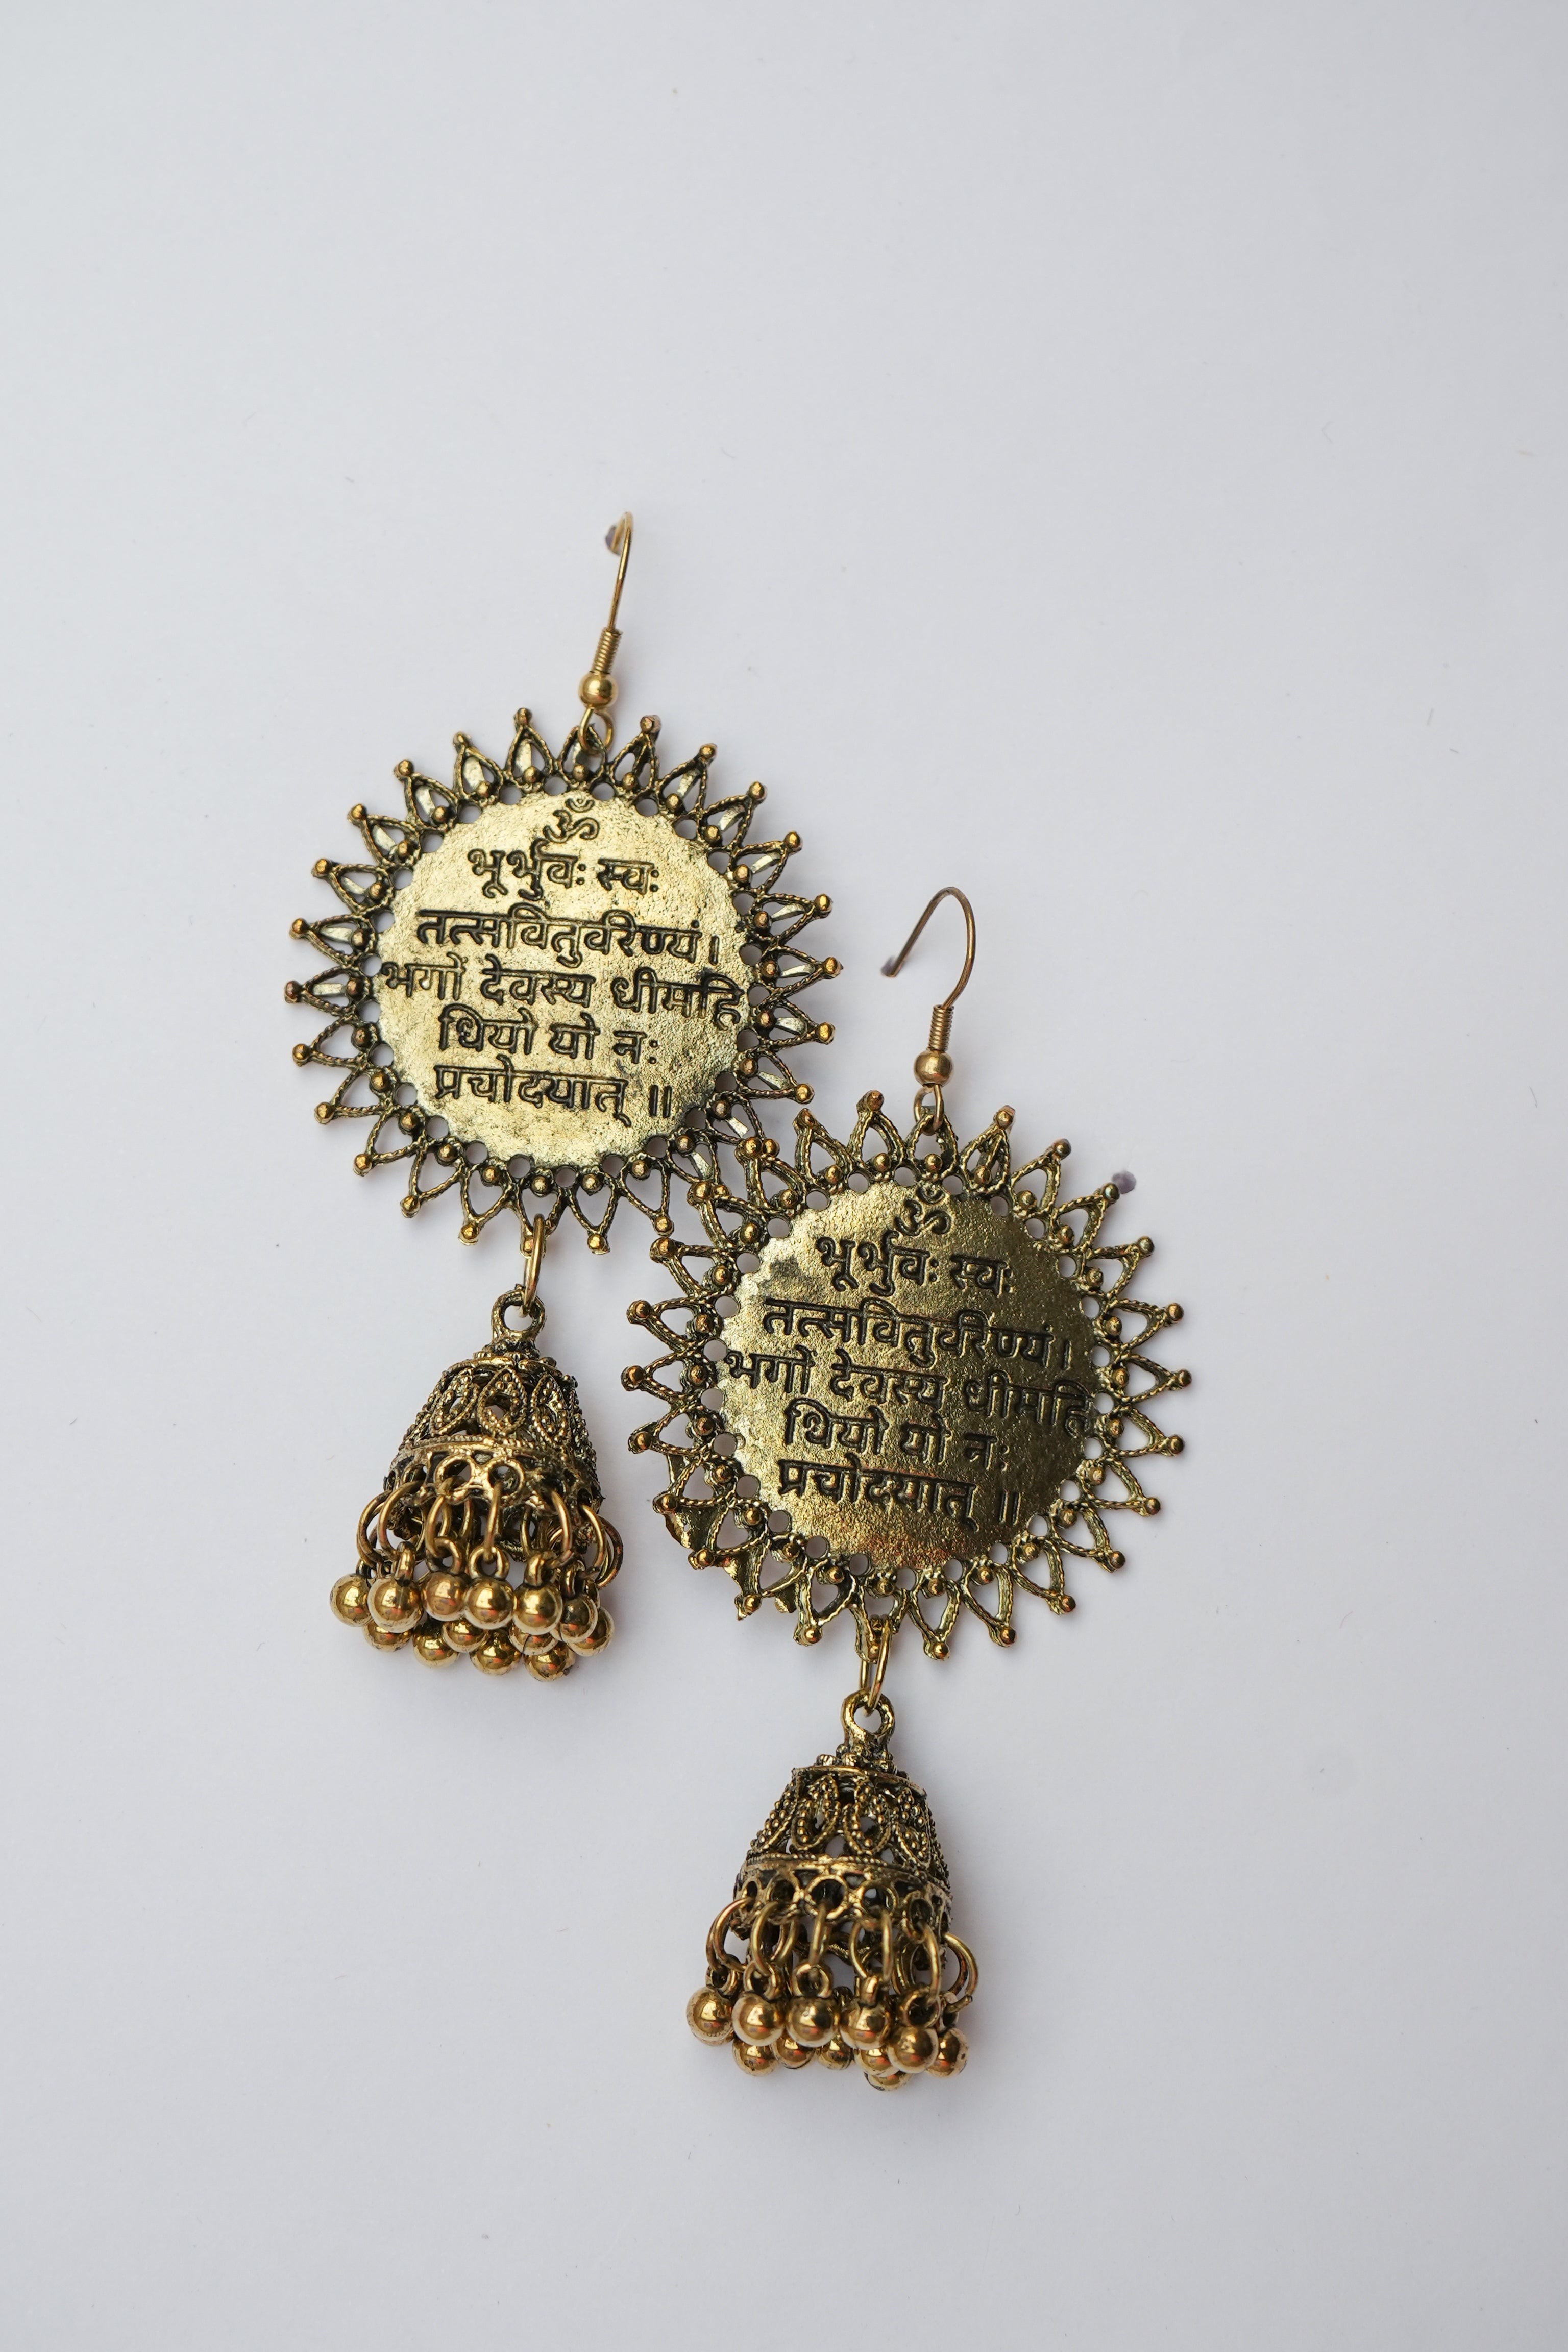 ॐ
भूर्भुवः स्वः
तत्सवितुर्वरेण्यं।
भर्गो देवस्य धीमहि
धियो यो नः
प्रचोदयात् ॥
ॐ
भूर्भुवः स्वः
तत्सवितुर्वरेण्यं।
भर्गो देवस्य धीमहि
धियो यो नः
प्रचोदयात् ॥